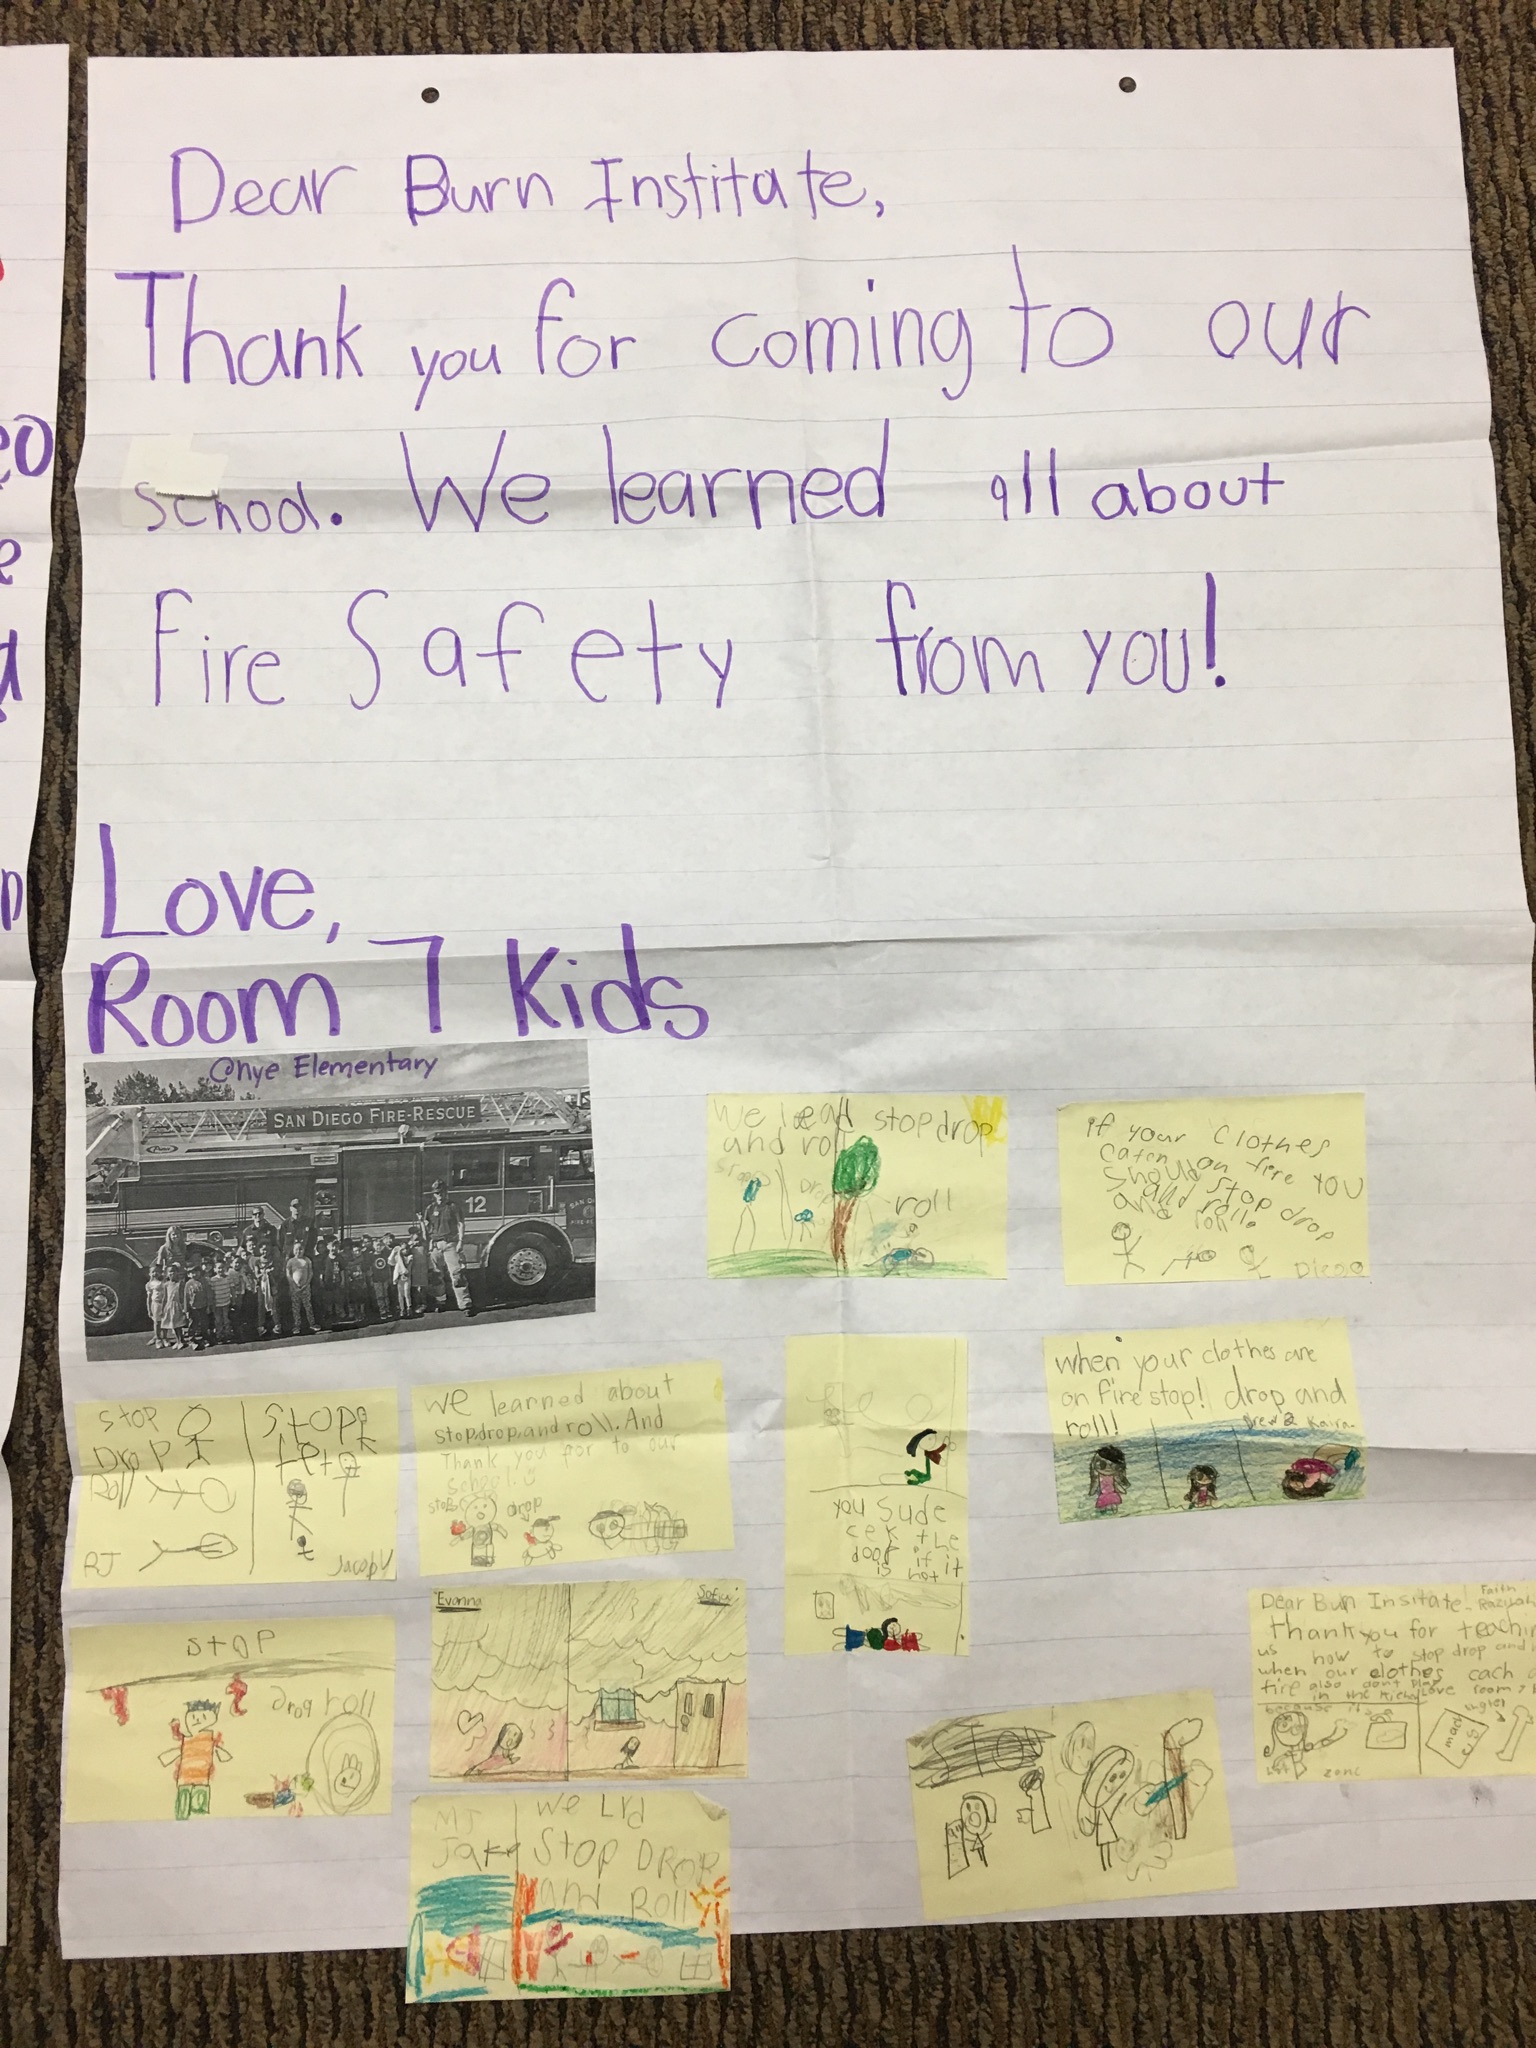 Dear Burn Institate,
Thank you for coming to our
school. We learned all about
Fire Safety from you!
Love,
Room 7 Kids
@nye Elementary
SAN DIEGO FIRE-RESCUE
12
We leard stop drop
and roll
roll
if your clothes
catch on fire you
should stop drop
and roll.
Diego
when your clothes are
on fire stop! drop and
roll!
Drew & Kaira
Stop
Drop
Roll
RJ
STOP
Jacob V
We learned about
stop,drop,and roll. And
Thank you for to our
school.
stop
drop
you sude
cek the
door if
is hot
Evanna
Sofia
STOP
drop roll
MJ
Jake
We Lrd
Stop DROP
and Roll
STOP
Faith
Dear Burn Insitate
Thank you for teachin
us how to stop drop and
when our clothes cach
fire also dont play
in the
Love room 7
zone